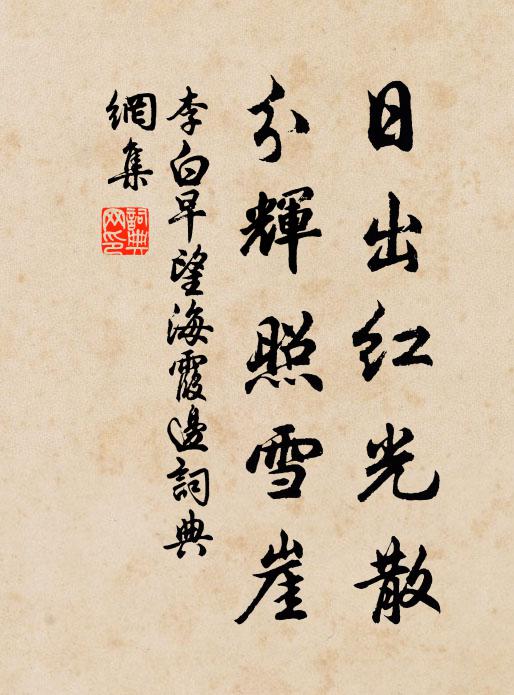 日出红光散
分輝照雪崖
李白早望海霞邊詞典
網集
詞典
网印